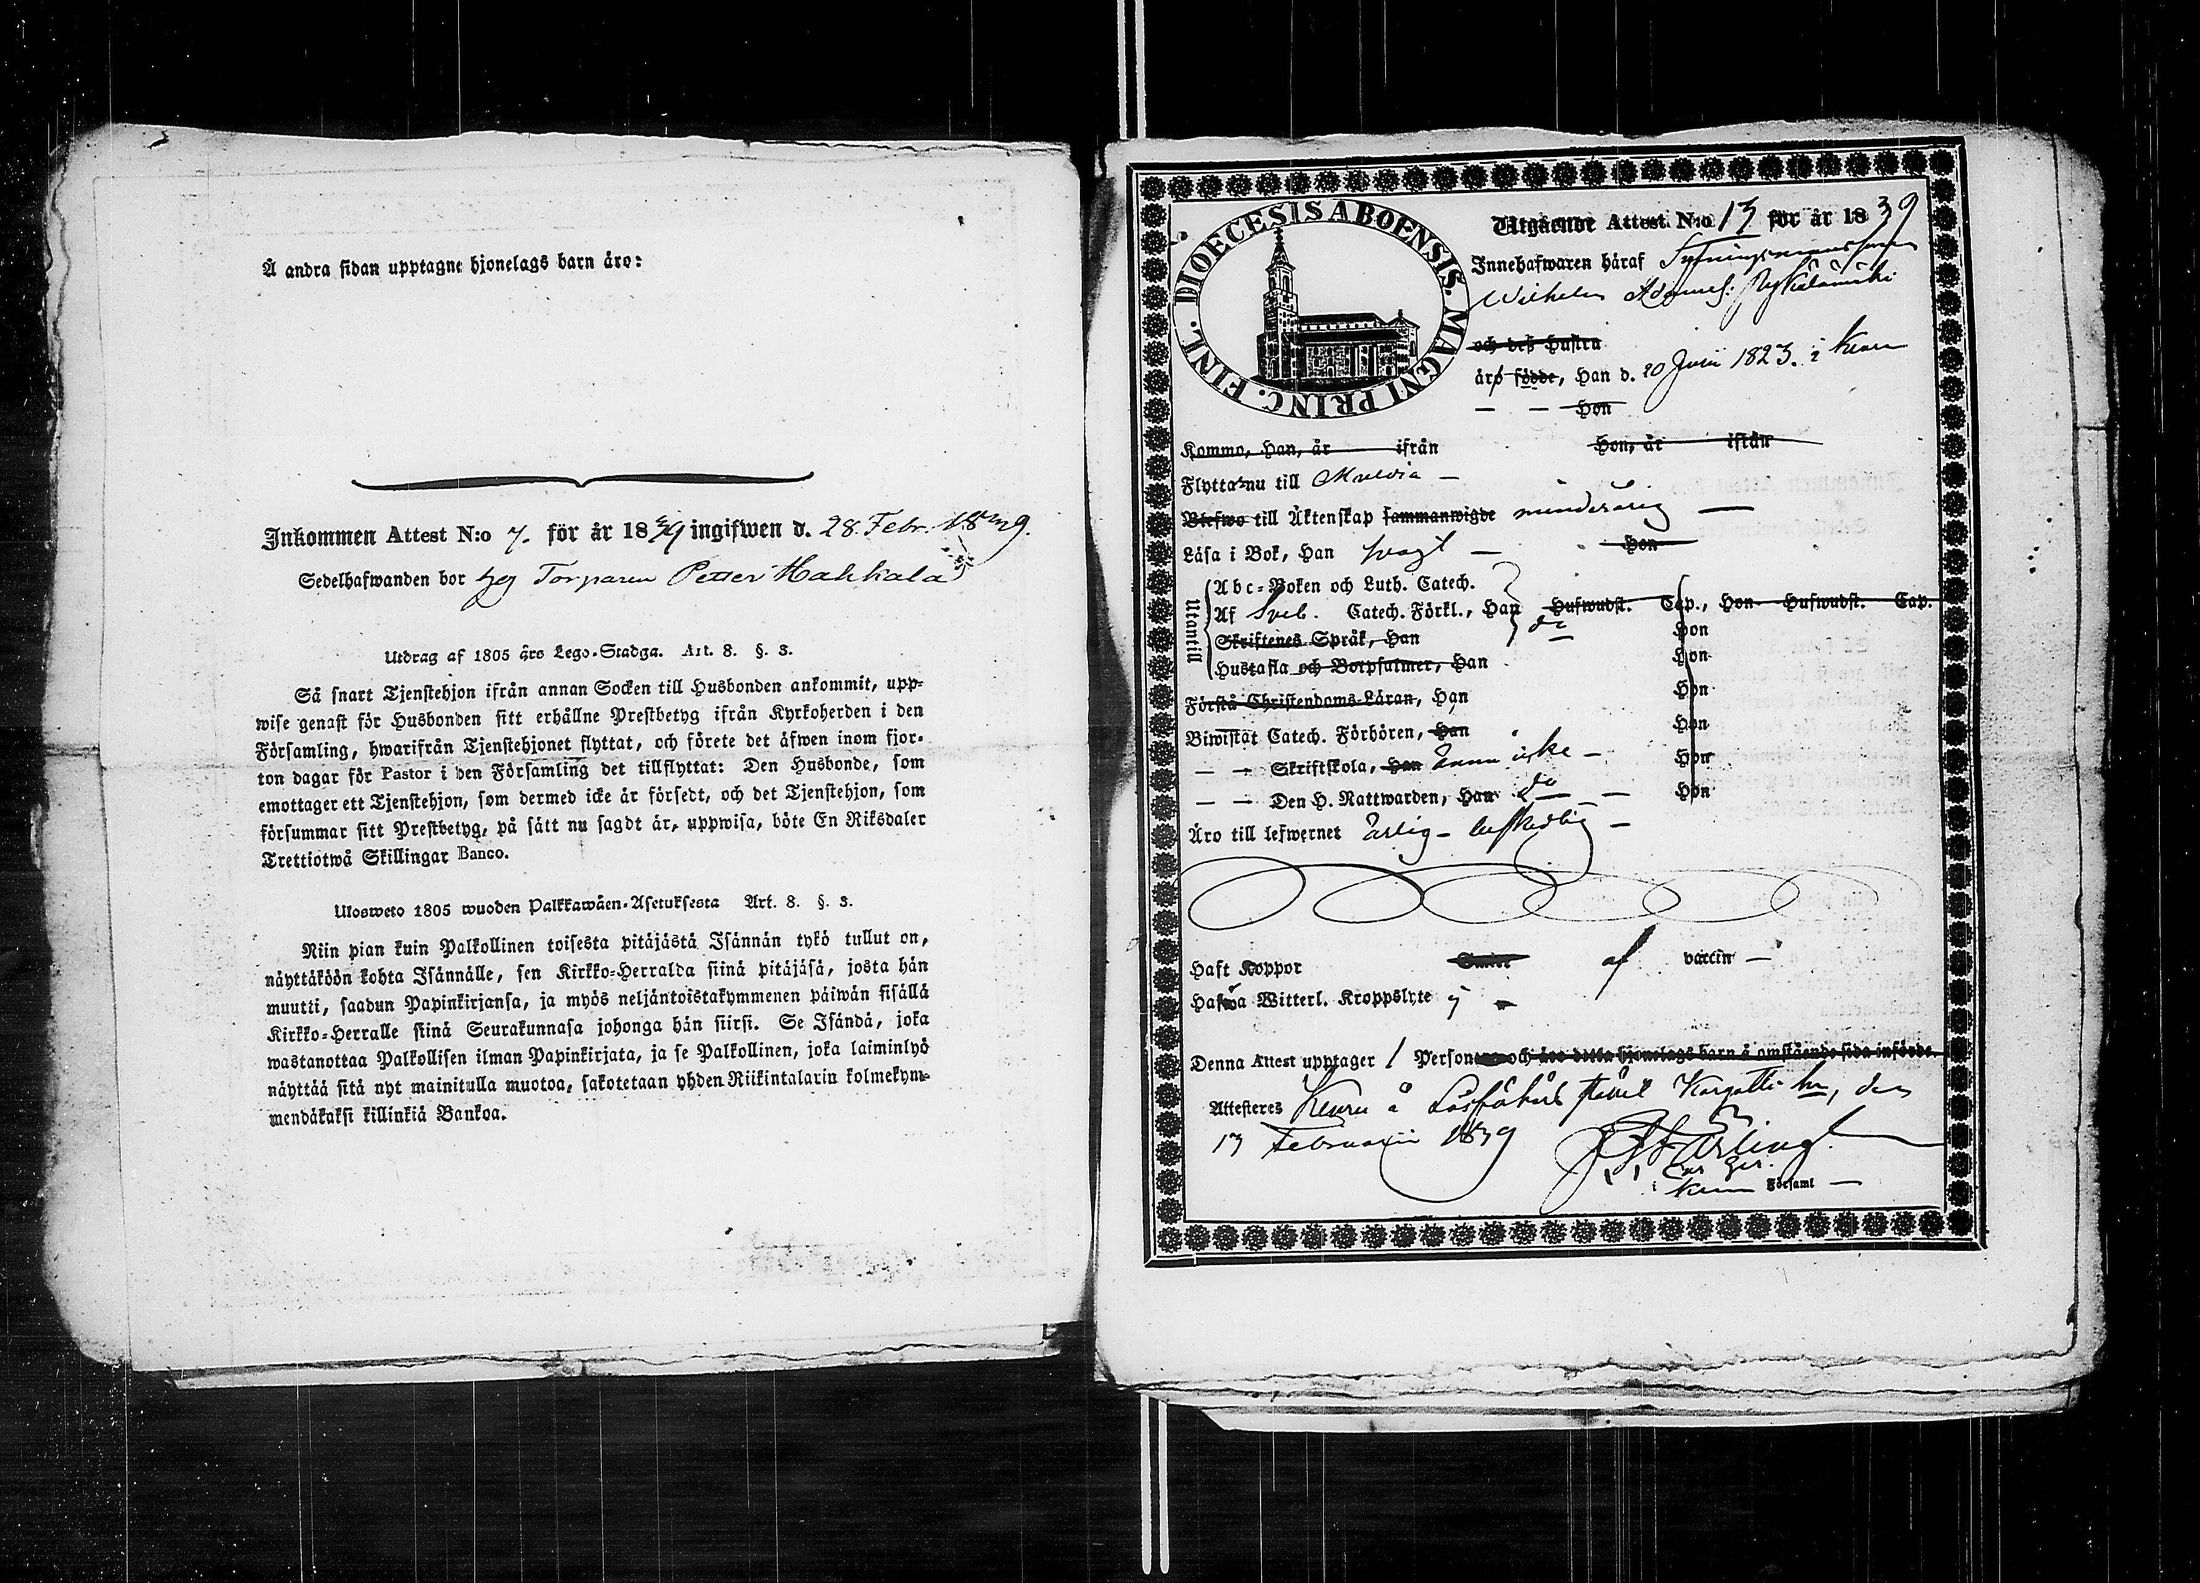 Å andra sidan upptagne hjonelags barn äro:
Inkommen Attest N:o 7. för år 1839 ingifwen d. 28 Febr. 1839.
Sedelhafwanden bor hos Torparen Petter Hakkala
Utdrag af 1805 års Lego-Stadga. Art. 8. §. 3.
Så snart Tjenstehjon ifrån annan Socken till Husbonden ankommit, upp-
wise genast för Husbonden sitt erhållne Prestbetyg ifrån Kyrkoherden i den
Församling, hwarifrån Tjenstehjonet flyttat, och förete det äfwen inom fjor-
ton dagar för Pastor i den Församling det tillflyttat: Den Husbonde, som
emottager ett Tjenstehjon, som dermed icke är försedt, och det Tjenstehjon, som
försummar sitt Prestbetyg, på sätt nu sagdt är, uppwisa, böte En Riksdaler
Trettiotwå Skillingar Banco.
Ulosweto 1805 wuoden Palkkawäen-Asetuksesta Art. 8. §. 3.
Niin pian kuin Palkollinen toisesta pitäjästä Isännän tykö tullut on,
näyttäköön kohta Isännälle, sen Kirkko-Herralda siinä pitäjäsä, josta hän
muutti, saadun Papinkirjansa, ja myös neljäntoistakymmenen päiwän sisällä
Kirkko-Herralle siinä Seurakunnasa johonga hän siirsi. Se Isändä, joka
wastanottaa Palkollisen ilman Papinkirjata, ja se Palkollinen, joka laiminlyö
näyttää sitä nyt mainitulla muotoa, sakotetaan yhden Riikintalarin kolmekym-
mendäkaksi killinkiä Bankoa.
DIOECESIS ABOENSIS. MAGNI PRINC. FINL.
Utgående Attest N:o 13 för år 1839
Innehafwaren häraf Sytningsmanssonen
Wilhelm Adamsf.
och deß Hustru
äro födde, Han d. 20 Junii 1823. i Keuru
— — Hon
Kommo, Han, år ifrån Hon, år ifrån
Flytta nu till Multia —
Blefwo till Äktenskap sammanwigde minderårig —
Läsa i Bok, Han swagt — Hon
Utantill
Abc-Boken och Luth. Catech.
Af Sveb. Catech. Förkl., Han Hufwudst. Cap., Hon Hufwudst. Cap.
Skriftenes Språk, Han do Hon
Hustafla och Botpsalmer, Han Hon
Förstå Christendoms-Läran, Han Hon
Biwistat Catech. Förhören, Han Hon
— — Skriftskola, Han ännu icke — Hon
— — Den H. Nattwarden, Han do — Hon
Äro till lefwernet ärlig — beskedlig —
Haft Koppor Smitt af vaccin —
Hafwa Witterl. Kroppslyte ej —
Denna Attest upptager 1 Personer och äro detta hjonelags barn å omstående sida införde.
Attesteres Keuru å
13 Februarii 1839
i Keuru Församl —